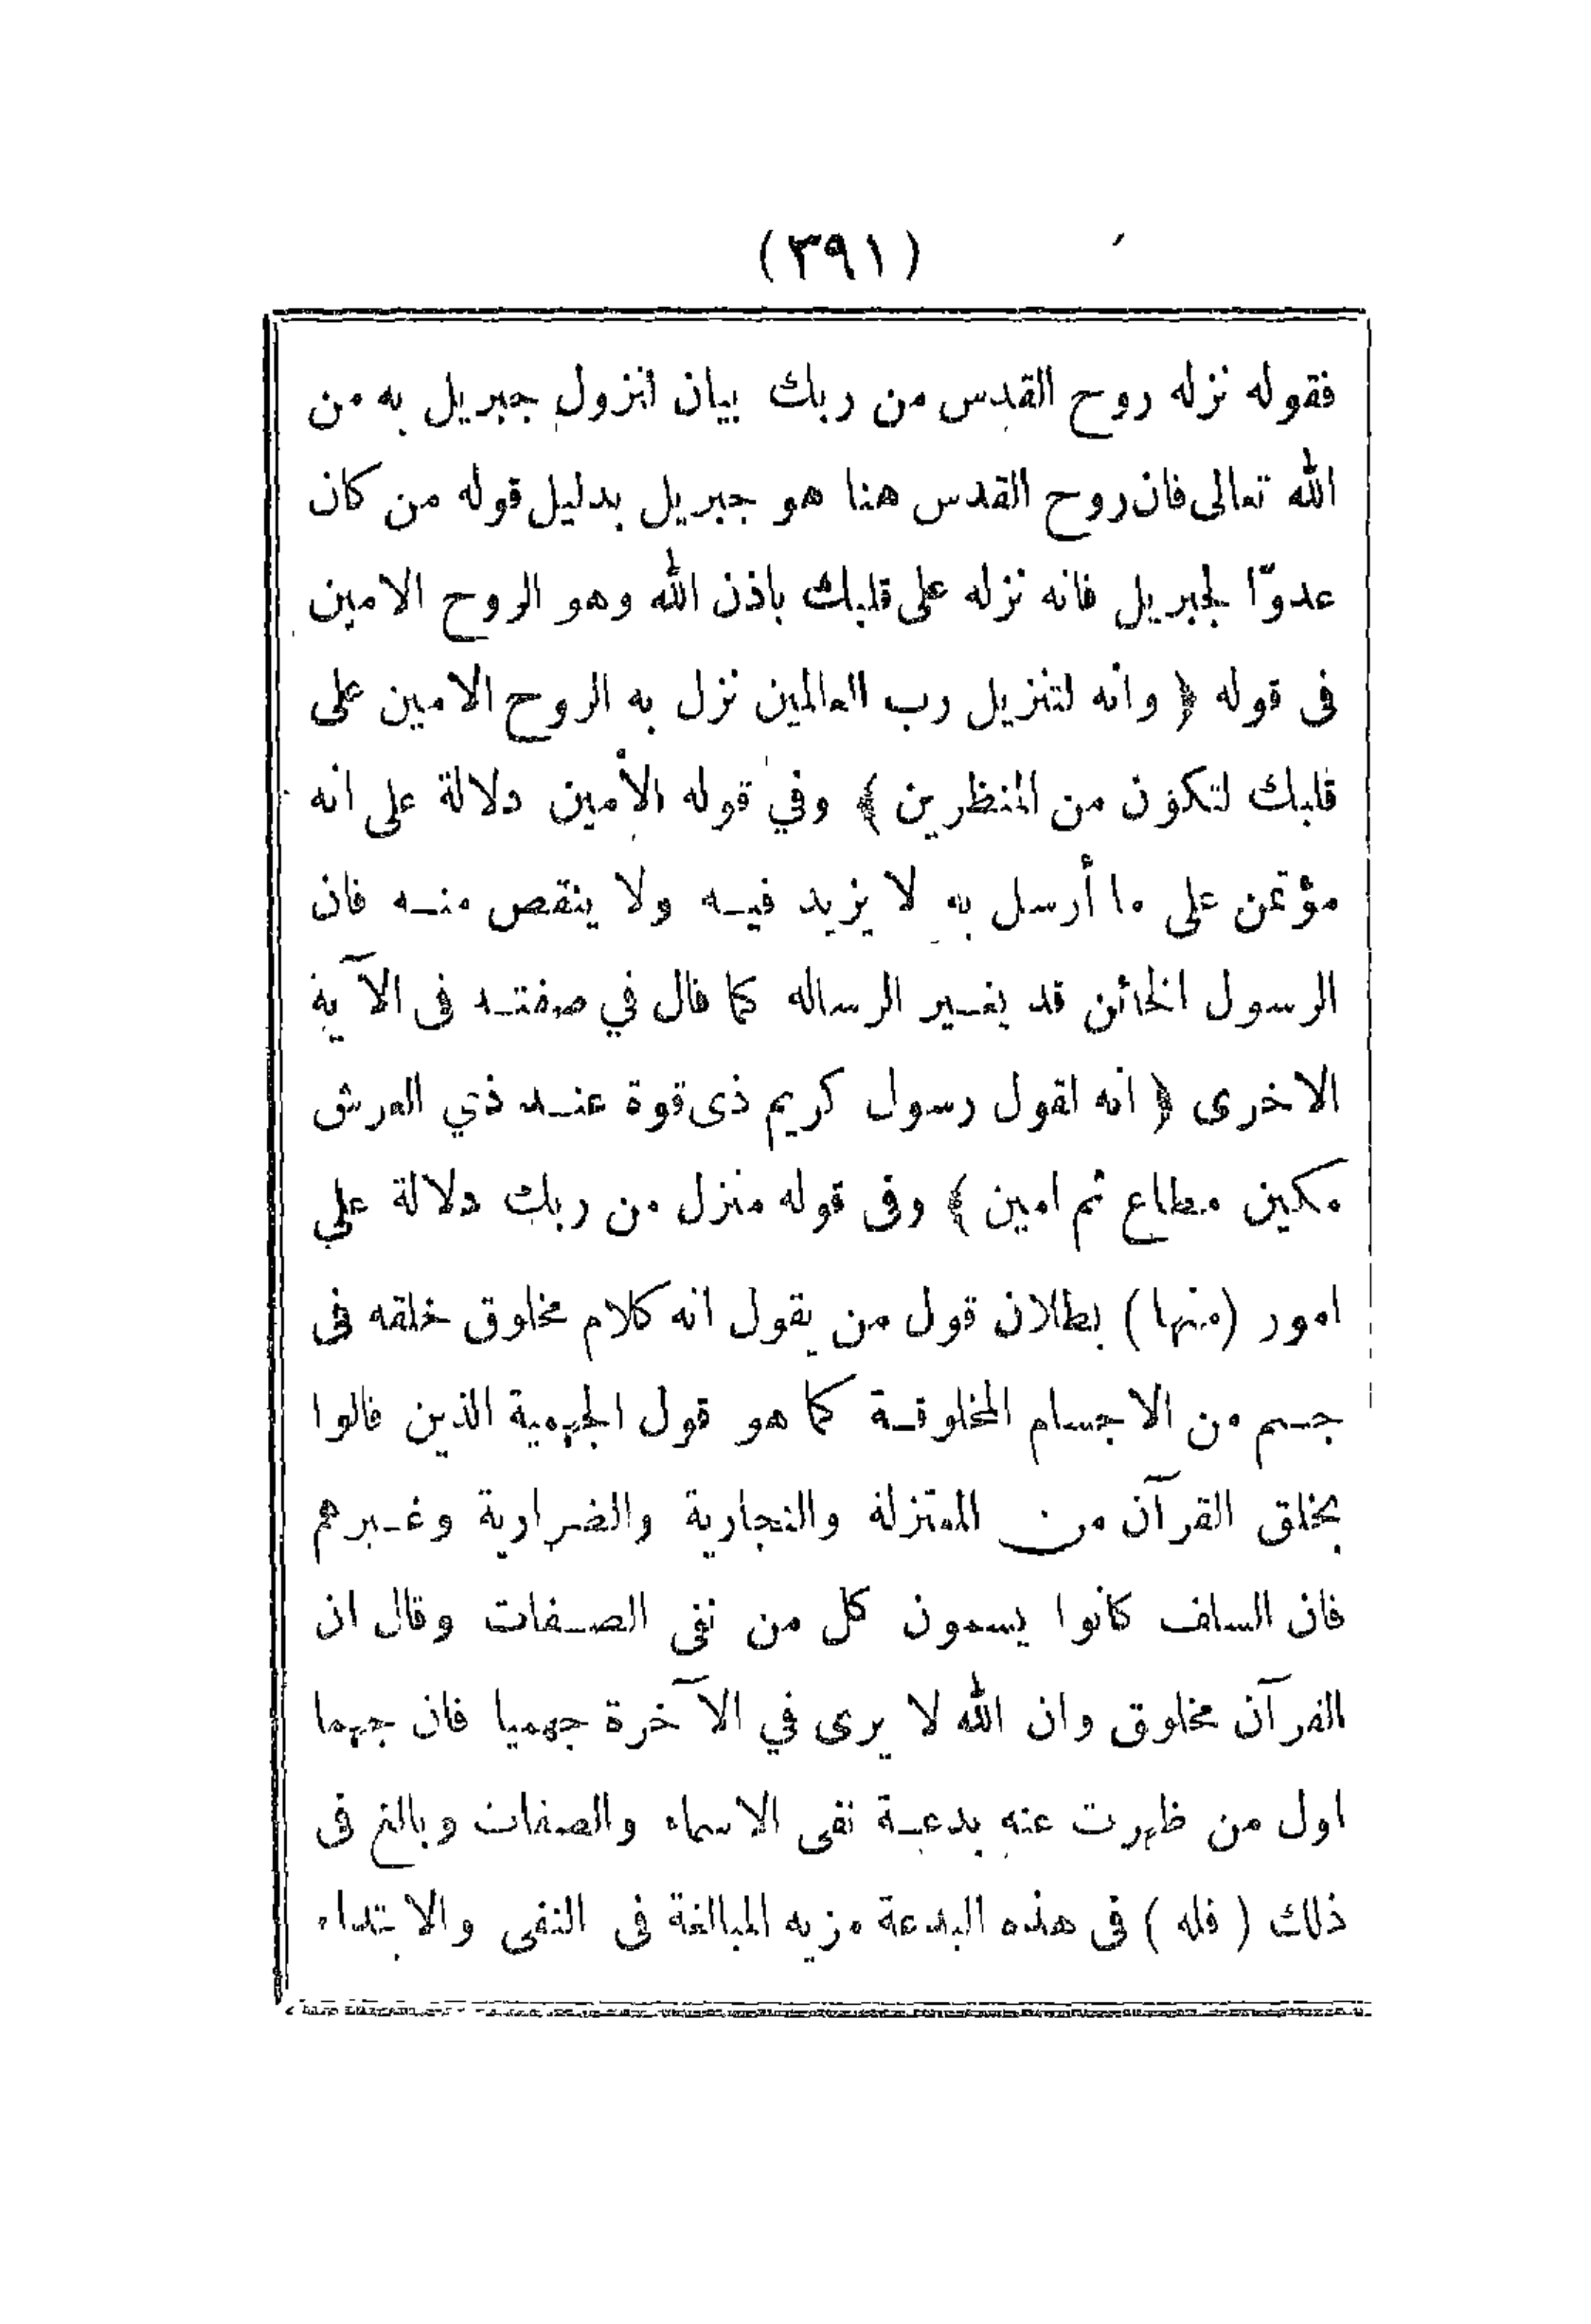 (٣٩١)
فقوله نزله روح القدس من ربك بيان لنزول جبريل به من
الله تعالى فان روح القدس هنا هو جبريل بدليل قوله من كان
عدوّا لجبريل فانه نزله على قلبك باذن الله وهو الروح الامين
فى قوله ﴿ وانه لتنزيل رب العالمين نزل به الروح الامين على
قلبك لتكون من المنظرين ﴾ وفي قوله الأمين دلالة على انه
مؤتمن على ما أرسل به لا يزيد فيه ولا ينقص منه فان
الرسول الخائن قد يغير الرساله كما قال في صفته فى الآية
الاخرى ﴿ انه لقول رسول كريم ذى قوة عند ذي العرش
مكين مطاع ثم امين ﴾ وفى قوله منزل من ربك دلالة علي
امور (منها) بطلان قول من يقول انه كلام مخلوق خلقه فى
جسم من الاجسام المخلوقة كما هو قول الجهمية الذين قالوا
بخلق القرآن من المعتزلة والنجارية والضرارية وغيرهم
فان السلف كانوا يسمون كل من نفى الصفات وقال ان
القرآن مخلوق وان الله لا يرى في الآخرة جهميا فان جهما
اول من ظهرت عنه بدعة نفى الاسماء والصفات وبالغ فى
ذلك ( فله ) فى هذه البدعة مزيه المبالغة فى النفى والابتداء